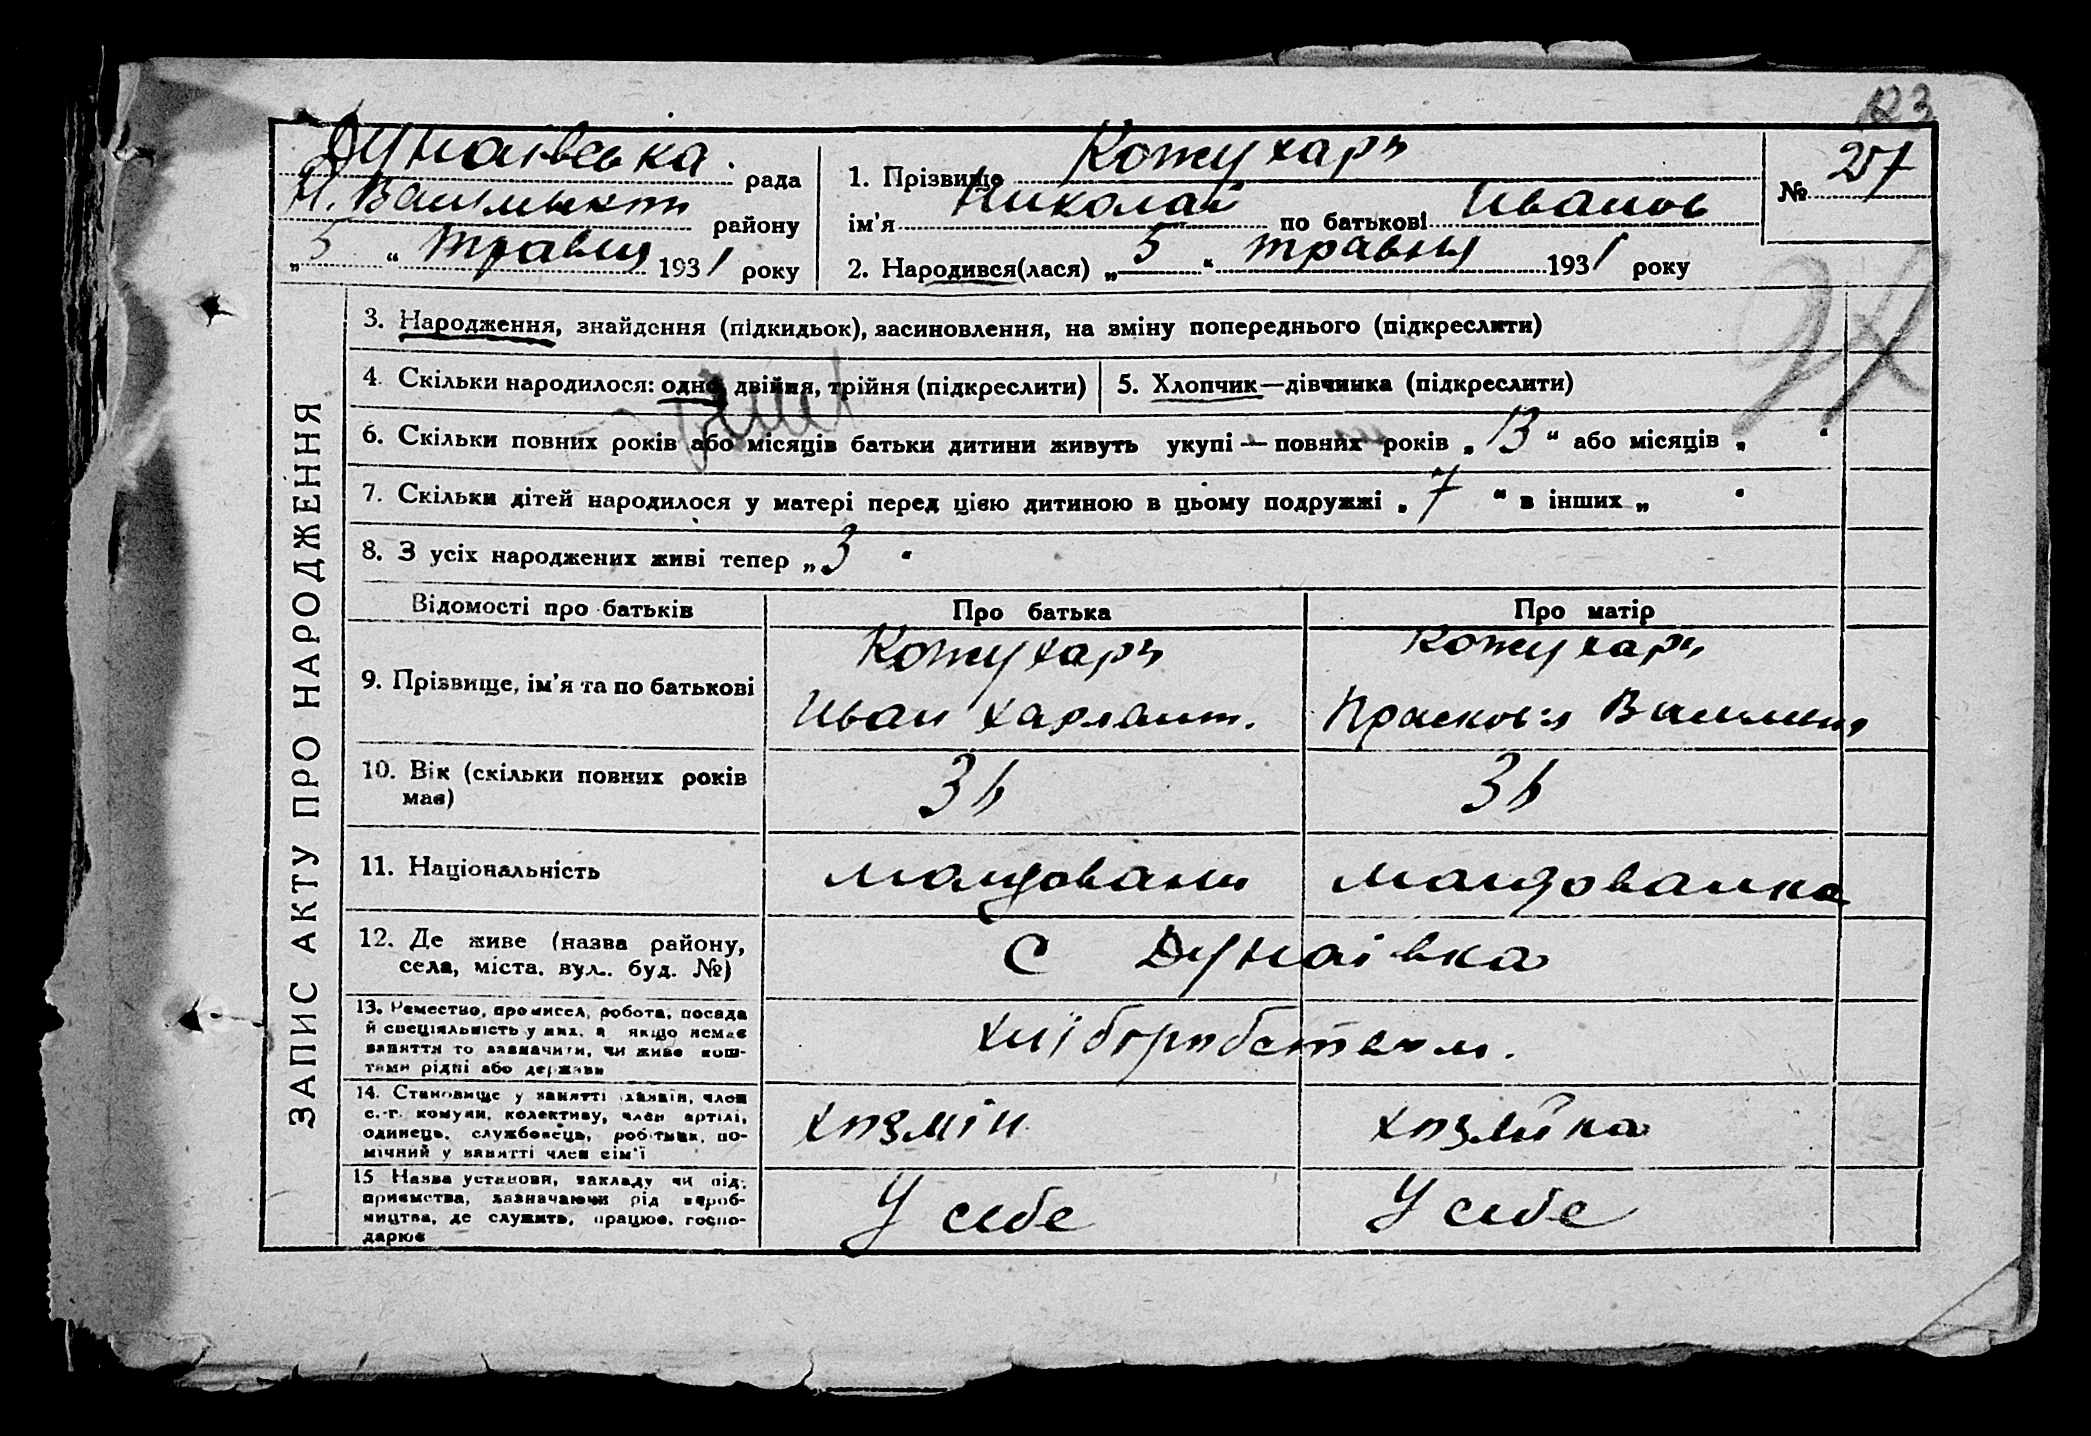 123
Дунаівська рада
Н. Василькт району
„5“ травня 1931 року
1. Прізвище Кожухарь
ім'я Николай по батькові Иванов
2. Народився(лася) „5“ травня 1931 року
№ 27
27
ЗАПИС АКТУ ПРО НАРОДЖЕННЯ
3. Народження, знайдення (підкидьок), засиновлення, на зміну попереднього (підкреслити)
4. Скільки народилося: одно, двійня, трійня (підкреслити)
5. Хлопчик—дівчинка (підкреслити)
6. Скільки повних років або місяців батьки дитини живуть укупі — повних років „13“ або місяців „ “
7. Скільки дітей народилося у матері перед цією дитиною в цьому подружжі „7“ в інших „ “
8. З усіх народжених живі тепер „3“
Відомості про батьків Про батька Про матір
9. Прізвище, ім'я та по батькові
Кожухарь
Иван Харламт.
Кожухарь
Прасковія
10. Вік (скільки повних років
має)
36 36
11. Національність молдовани молдованка
12. Де живе (назва району,
села, міста, вул., буд. №)
С Дунаівка
13. Ремество, промисел, робота, посада
й спеціяльність у них, а якщо немає
заняття то зазначити, чи живе кош-
тами рідні або держави
хліборобством.
14. Становище у занятті хазяїн, член
с.-г. комуни, колективу, член артілі,
одинець, службовець, робітник, по-
мічний у занятті член сім'ї
хозяін хозяйка
15 Назва установи, закладу чи під-
приємства, зазначаючи рід вироб-
ництва, де служить, працює, госпо-
дарює
У себе У себе